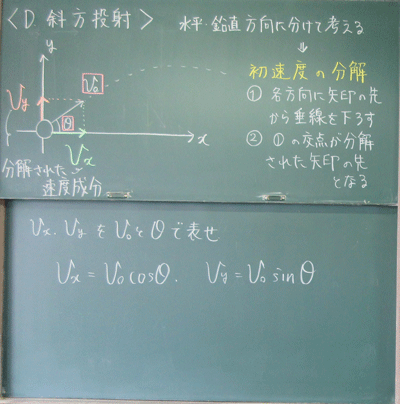 <D 斜方投射>
水平・鉛直方向に分けて考える
⇓
y
V₀
Vy
θ
Vx
x
分解された
速度成分
初速度の分解
① 各方向に矢印の先
から垂線を下ろす
② ①の交点が分解
された矢印の先
となる
Vx. Vy を V₀とθで表せ
Vx = V₀cosθ. Vy = V₀sinθ